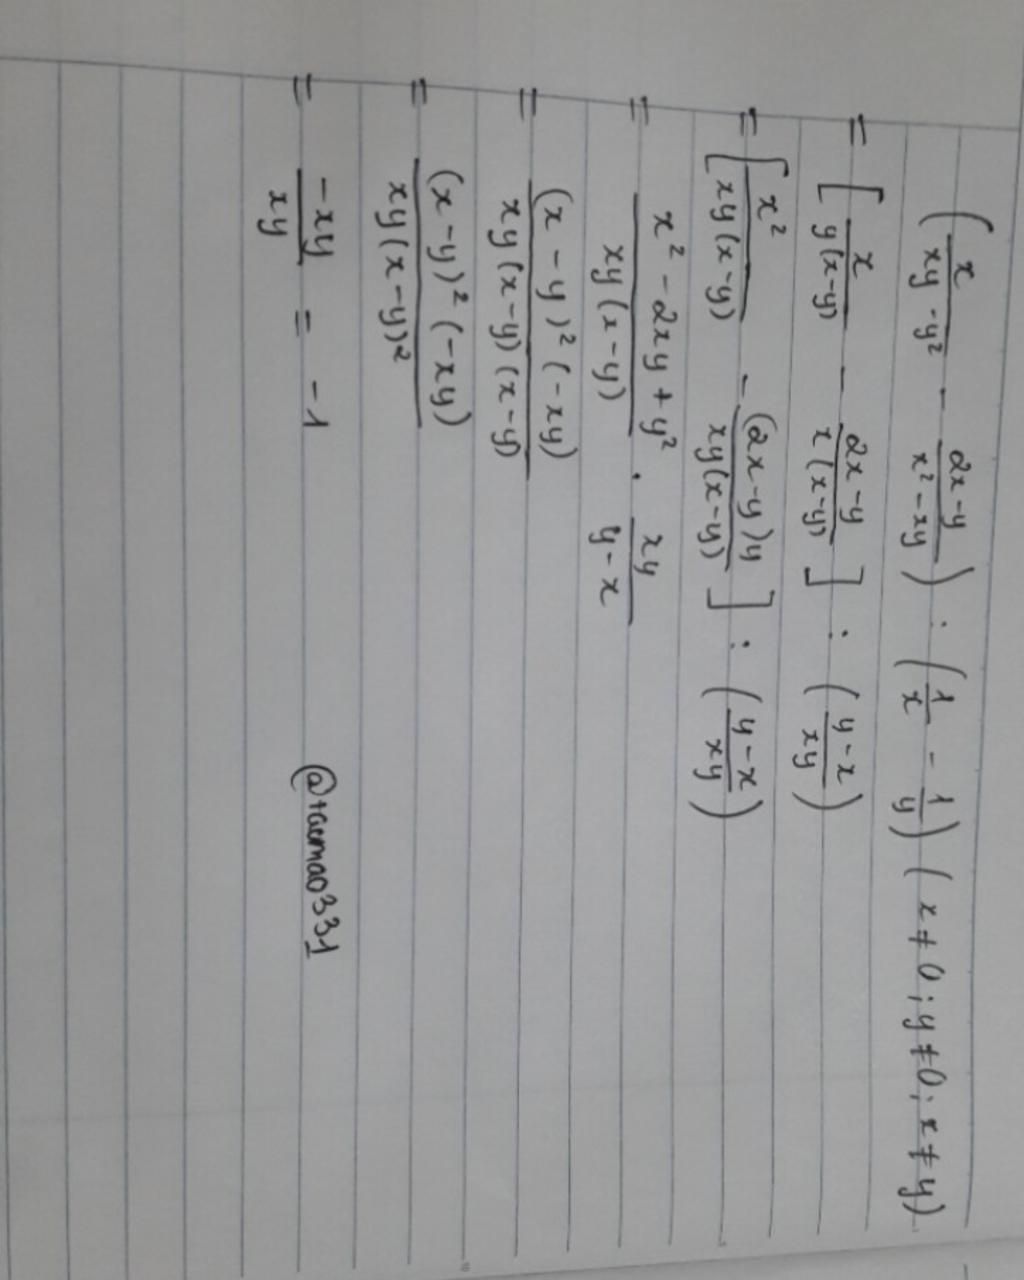 (x/(xy - y²) - (2x-y)/(x² - xy)) : (1/x - 1/y) (x ≠ 0; y ≠ 0; x ≠ y)
= [x/(y(x-y)) - (2x-y)/(x(x-y))] : ((y-x)/(xy))
= [x²/(xy(x-y)) - ((2x-y)y)/(xy(x-y))] : ((y-x)/(xy))
= (x² - 2xy + y²)/(xy(x-y)) . (xy)/(y-x)
= ((x-y)²(-xy))/(xy(x-y)(x-y))
= ((x-y)²(-xy))/(xy(x-y)²)
= (-xy)/(xy) = -1
@taemao331